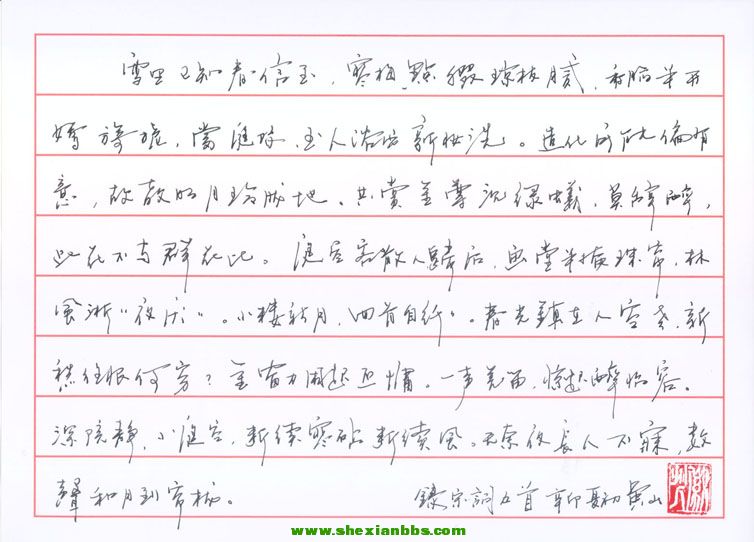 雪里已知春信至，寒梅點綴琼枝膩，香脸半开
嬌旖旎，當庭際，玉人浴出新妝洗。造化可能偏有
意，故教明月玲珑地。共赏金尊沉绿蟻，莫辞醉，
此花不与群花比。庭空客散人歸后，画堂半掩珠帘，林
风淅〃夜厌〃。小楼新月，回首自纤〃。春光镇在人空老，新
愁往恨何穷？金窗力困起还慵。一声羌笛，惊起醉怡容。
深院静，小庭空，断续寒砧断续风。无奈夜長人不寐，数
聲和月到帘栊。 錄宋詞五首 辛卯夏初 黄山
www.shexianbbs.com